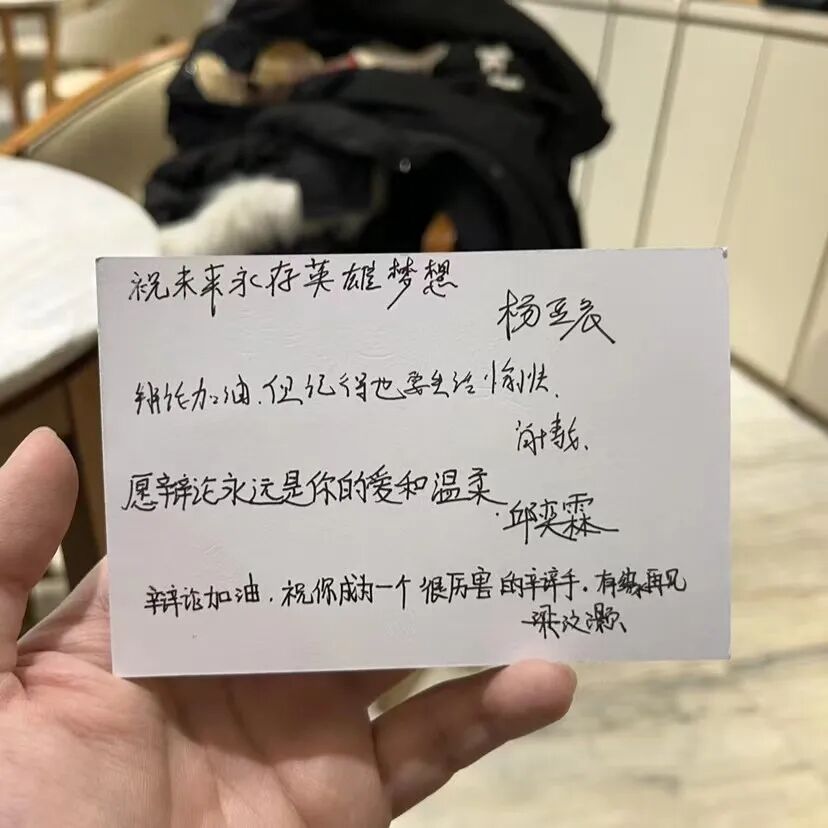 祝未来永存英雄梦想
杨亚辰
辩论加油,但记得也要生活愉快.
愿辩论永远是你的爱和温柔.
邱奕霖
辩论加油,祝你成为一个很厉害的辩手.有缘再见
梁汶灏